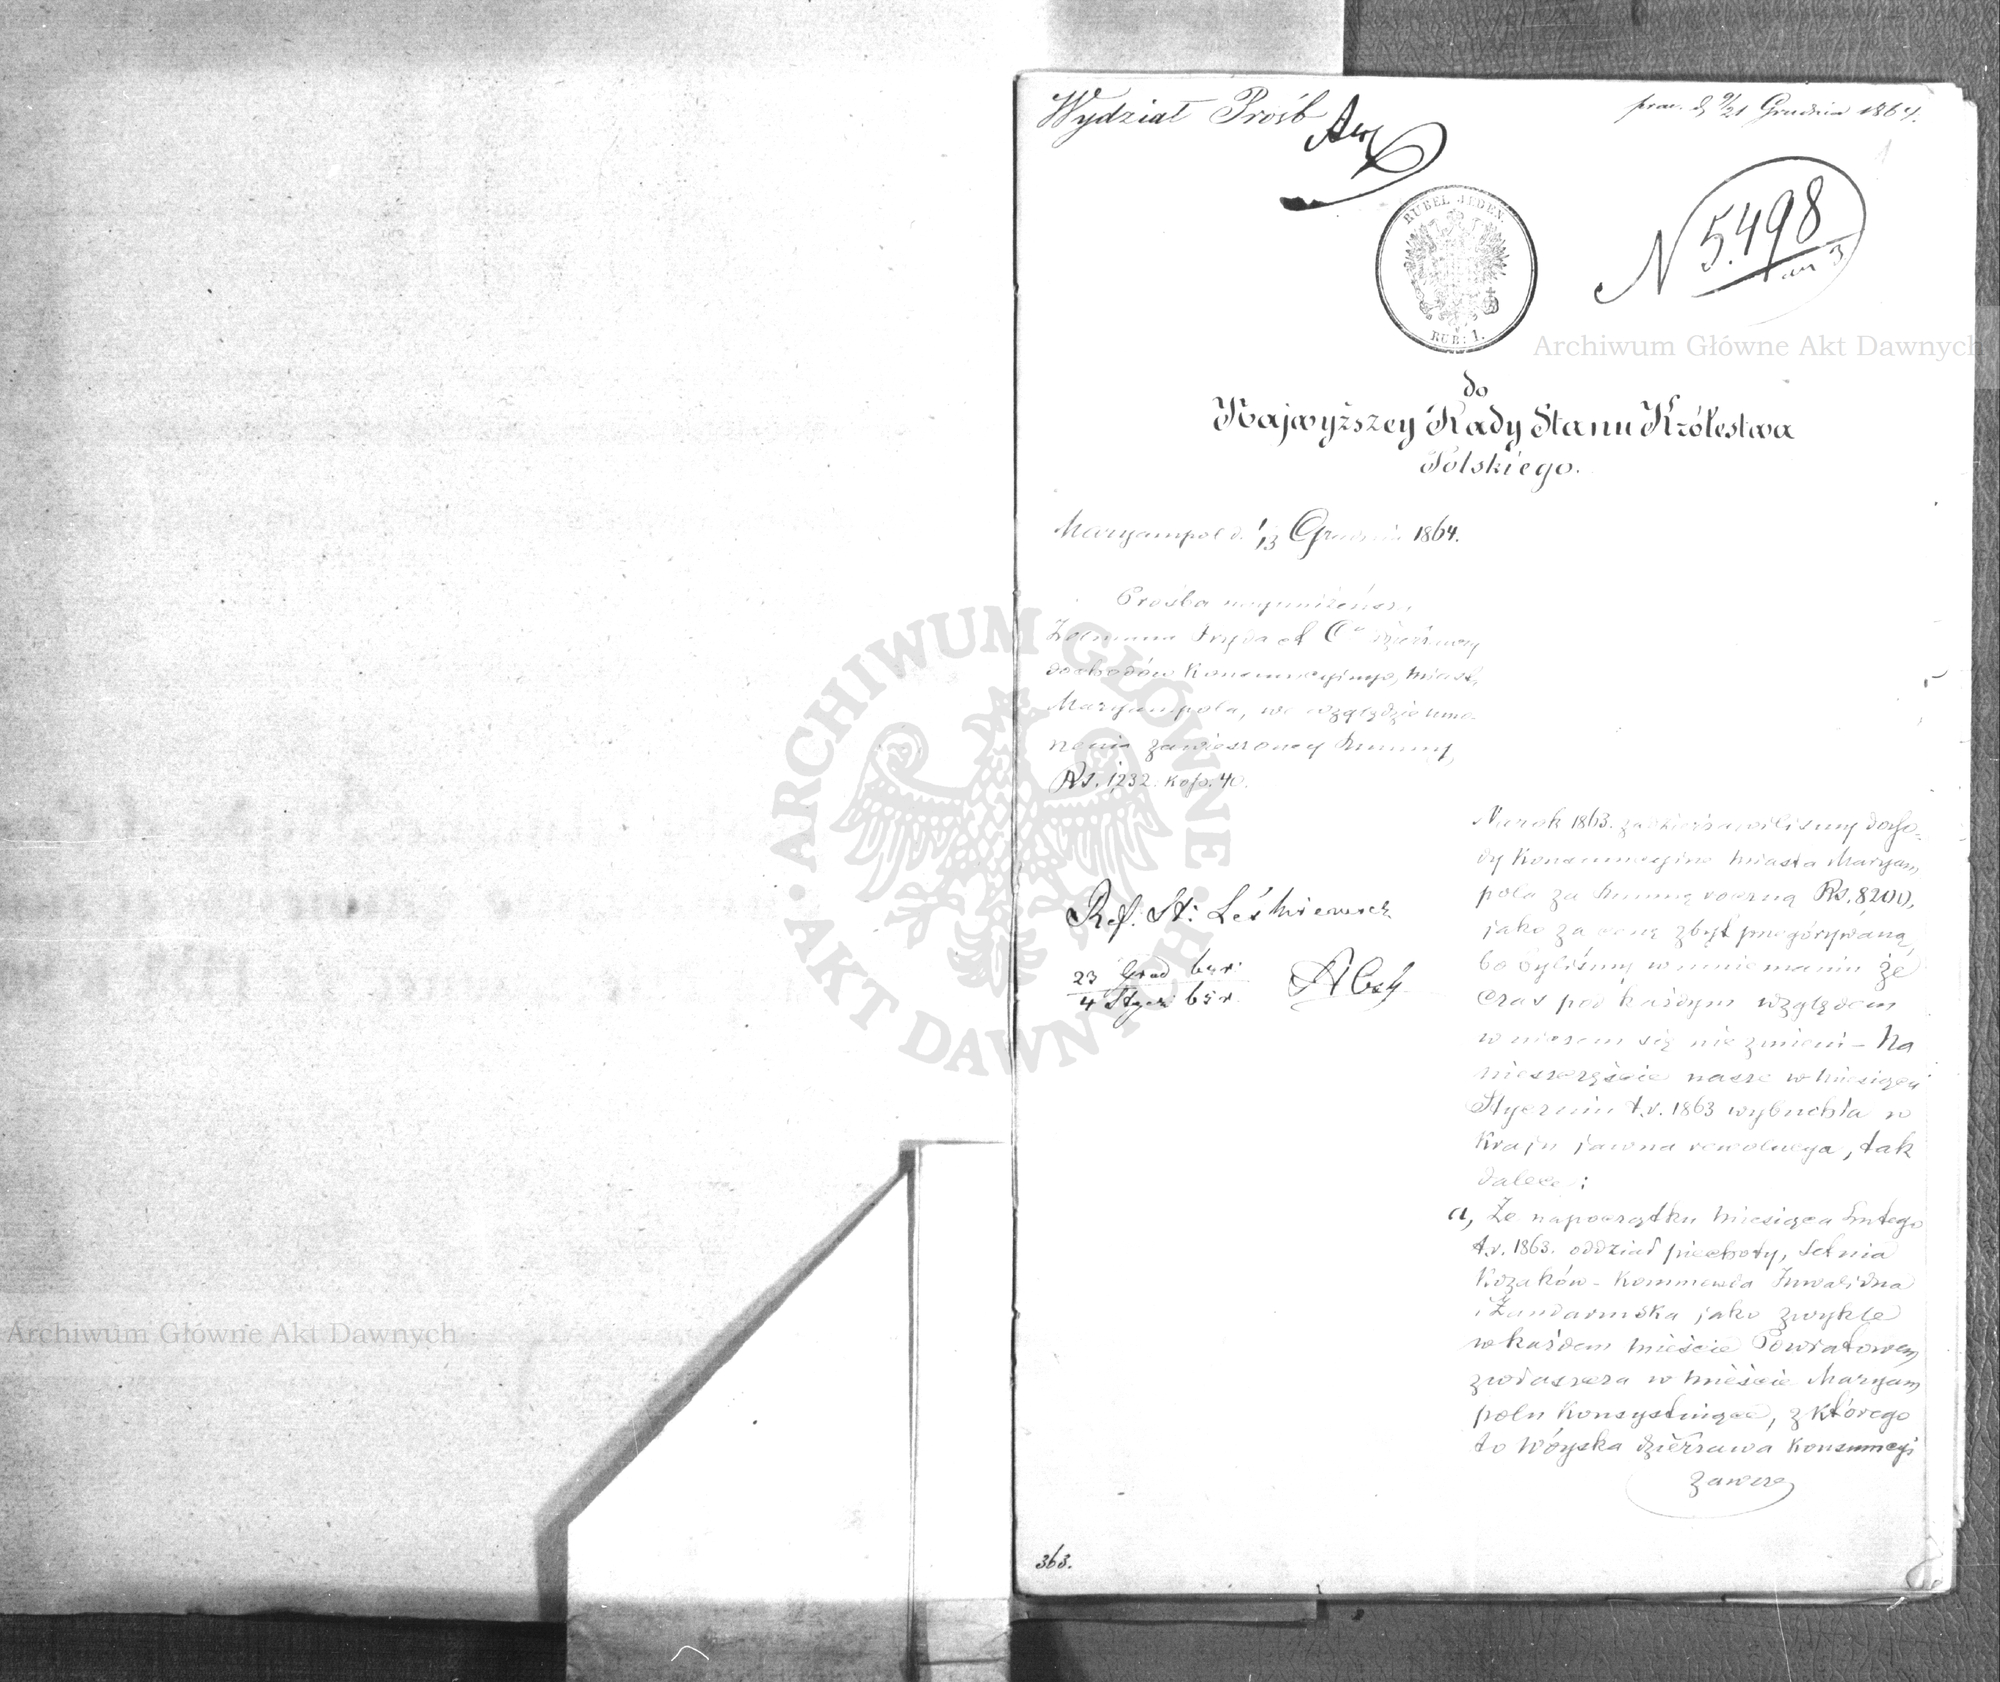 Wydział Próśb
prez. d 9/21 Grudnia 1864.
N 5.498
RUBEL JEDEN
RUB: 1.
Archiwum Główne Akt Dawnych
do
Najwyższey Rady Stanu Królestwa
Polskiego.
Maryampol d. 1/13 Grudnia 1864.
Prośba
dochodów Konsumcyjnego, Miasta
Maryampola, we względzie umo-
rzenia zawieszoney Summy
Rs. 1,232. kop. 40.
Ref. St: Leśkiewicz
23 Grud 64 r
4 Stycz 65 r
Na rok 1863. zadzierżawiliśmy docho-
dy Konsumcyjne Miasta Maryam
pola za Summę roczną Rs. 8200,
jako za cenę zbyt
bo byliśmy w mniemaniu że
czas pod każdym względem
w niczem się nie zmieni – Na
nieszczęście nasze w Miesiącu
Styczniu t.r. 1863 wybuchła w
Kraju jawna rewolucya, tak
dalece:
a, Że na początku Miesiąca Lutego
t.r. 1863. oddział piechoty, Setnia
Kozaków – Kommenda Inwalidna
i Żandarmska jako zwykle
w każdem Mieście Powiatowem
zwłaszcza w Mieście Maryam
polu Konsystujące, z którego
to Wóyska dzierżawa Konsumcyi
zawsze
363.
ARCHIWUM GŁÓWNE AKT DAWNYCH
Archiwum Główne Akt Dawnych